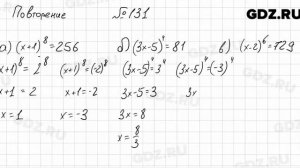 GDZ.RU
Повторение №131
а) (x+1)⁸=256 б) (3x-5)⁴=81 в) (x-2)⁶=729
(x+1)⁸=2⁸ (x+1)⁸=(-2)⁸ (3x-5)⁴=3⁴ (3x-5)⁴=(-3)⁴
x+1=2 x+1=-2 3x-5=3 3x
x=1 x=-3 3x=8
x=8/3